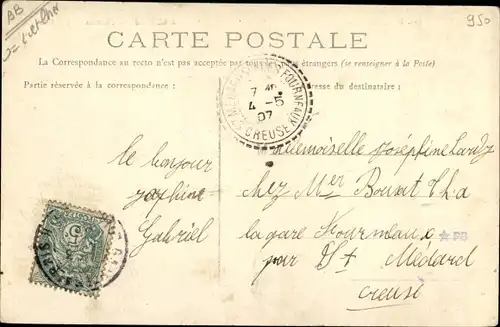 AB
950
CARTE POSTALE
La Correspondance au recto n'est pas acceptée par tous étrangers (se renseigner à la Poste)
Partie réservée à la correspondance :
adresse du destinataire :
FOURNEAUX
7
4 -5
07
CREUSE
le bonjour
Josephine
Gabriel
Mademoiselle Joséphine
chez Mer
la gare Fourneaux
par St Médard
Creuse